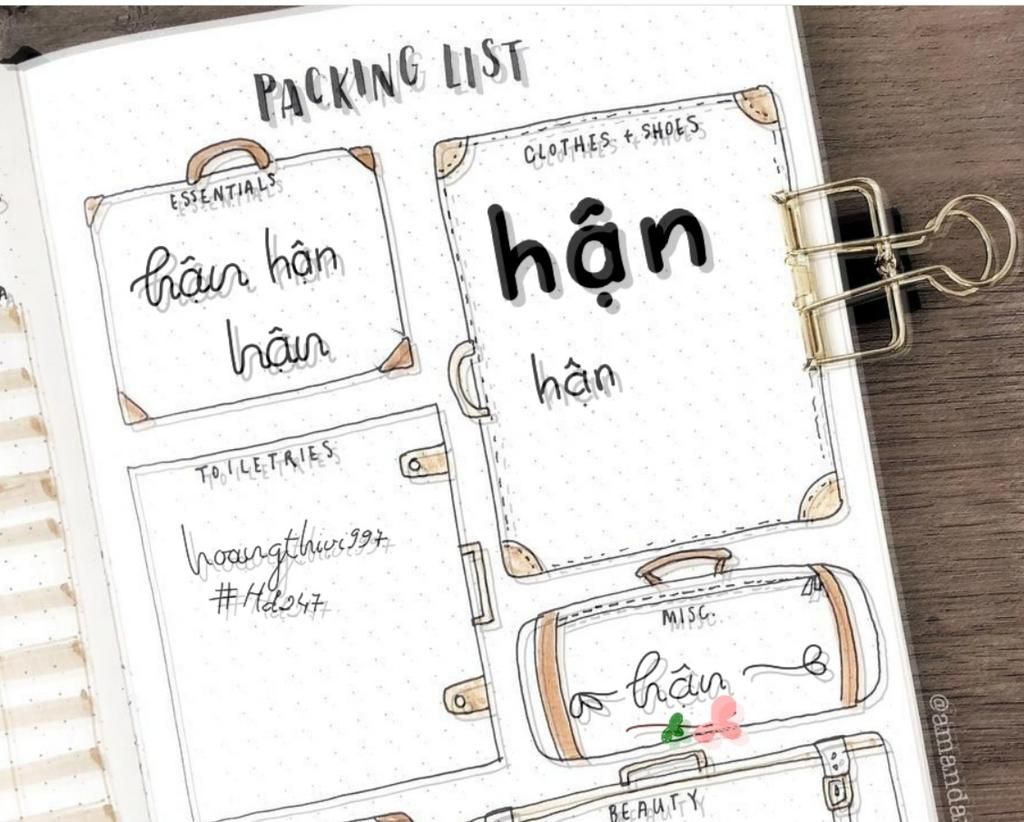 PACKING LIST
ESSENTIALS
hận hận
hận
CLOTHES + SHOES
hận
hận
TOILETRIES
hoangthui997
#Hd247
MISC.
hận
BEAUTY